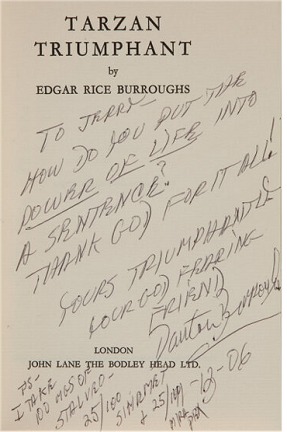 TARZAN
TRIUMPHANT
by
EDGAR RICE BURROUGHS
TO JERRY-
HOW DO YOU PUT THE
POWER OF LIFE INTO
A SENTENCE?
THANK GOD FOR IT ALL!
YOURS TRIUMPHANTLY
YOUR GOD FEARING
FRIEND
Danton Burroughs
12-06
LONDON
JOHN LANE THE BODLEY HEAD LTD.
PS-
I TAKE
100 MGS OF
25/100
& 25/100